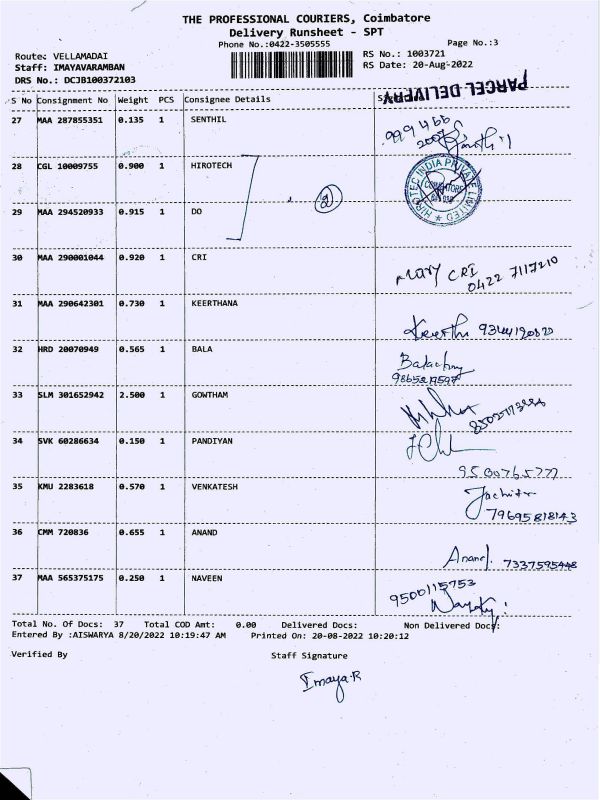 THE PROFESSIONAL COURIERS, Coimbatore
Delivery Runsheet - SPT
Phone No.:0422-3505555
Page No.:3
Route: VELLAMADAI
Staff: IMAYAVARAMBAN
DRS No.: DCJB100372103
RS No.: 1003721
RS Date: 20-Aug-2022
PARCEL DELIVERY
S No Consignment No Weight PCS Consignee Details
27 MAA 287855351 0.135 1 SENTHIL
999466
28 CGL 10009755 0.900 1 HIROTECH
HIROTEC INDIA PRIVATE LIMITED
COIMBATORE
2
29 MAA 294520933 0.915 1 DO
30 MAA 290001044 0.920 1 CRI
Mary CRI
0422 7117210
31 MAA 290642301 0.730 1 KEERTHANA
Keerthi 9344120820
32 HRD 20070949 0.565 1 BALA
33 SLM 301652942 2.500 1 GOWTHAM
34 SVK 60286634 0.150 1 PANDIYAN
9500765777
35 KMU 2283618 0.570 1 VENKATESH
79695818143
36 CMM 720836 0.655 1 ANAND
Anand. 7337595448
37 MAA 565375175 0.250 1 NAVEEN
9500115753
Total No. Of Docs: 37 Total COD Amt: 0.00 Delivered Docs: Non Delivered Docs:
Entered By :AISWARYA 8/20/2022 10:19:47 AM Printed On: 20-08-2022 10:20:12
Verified By Staff Signature
Imaya.R